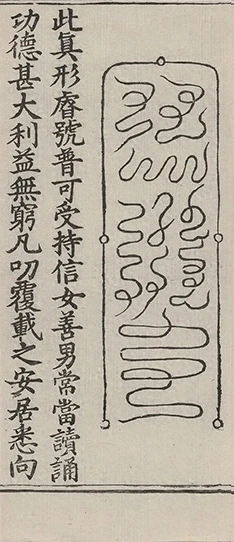 此真形睿號普可受持信女善男常當讀誦
功德甚大利益無窮凡叨覆載之安居悉向